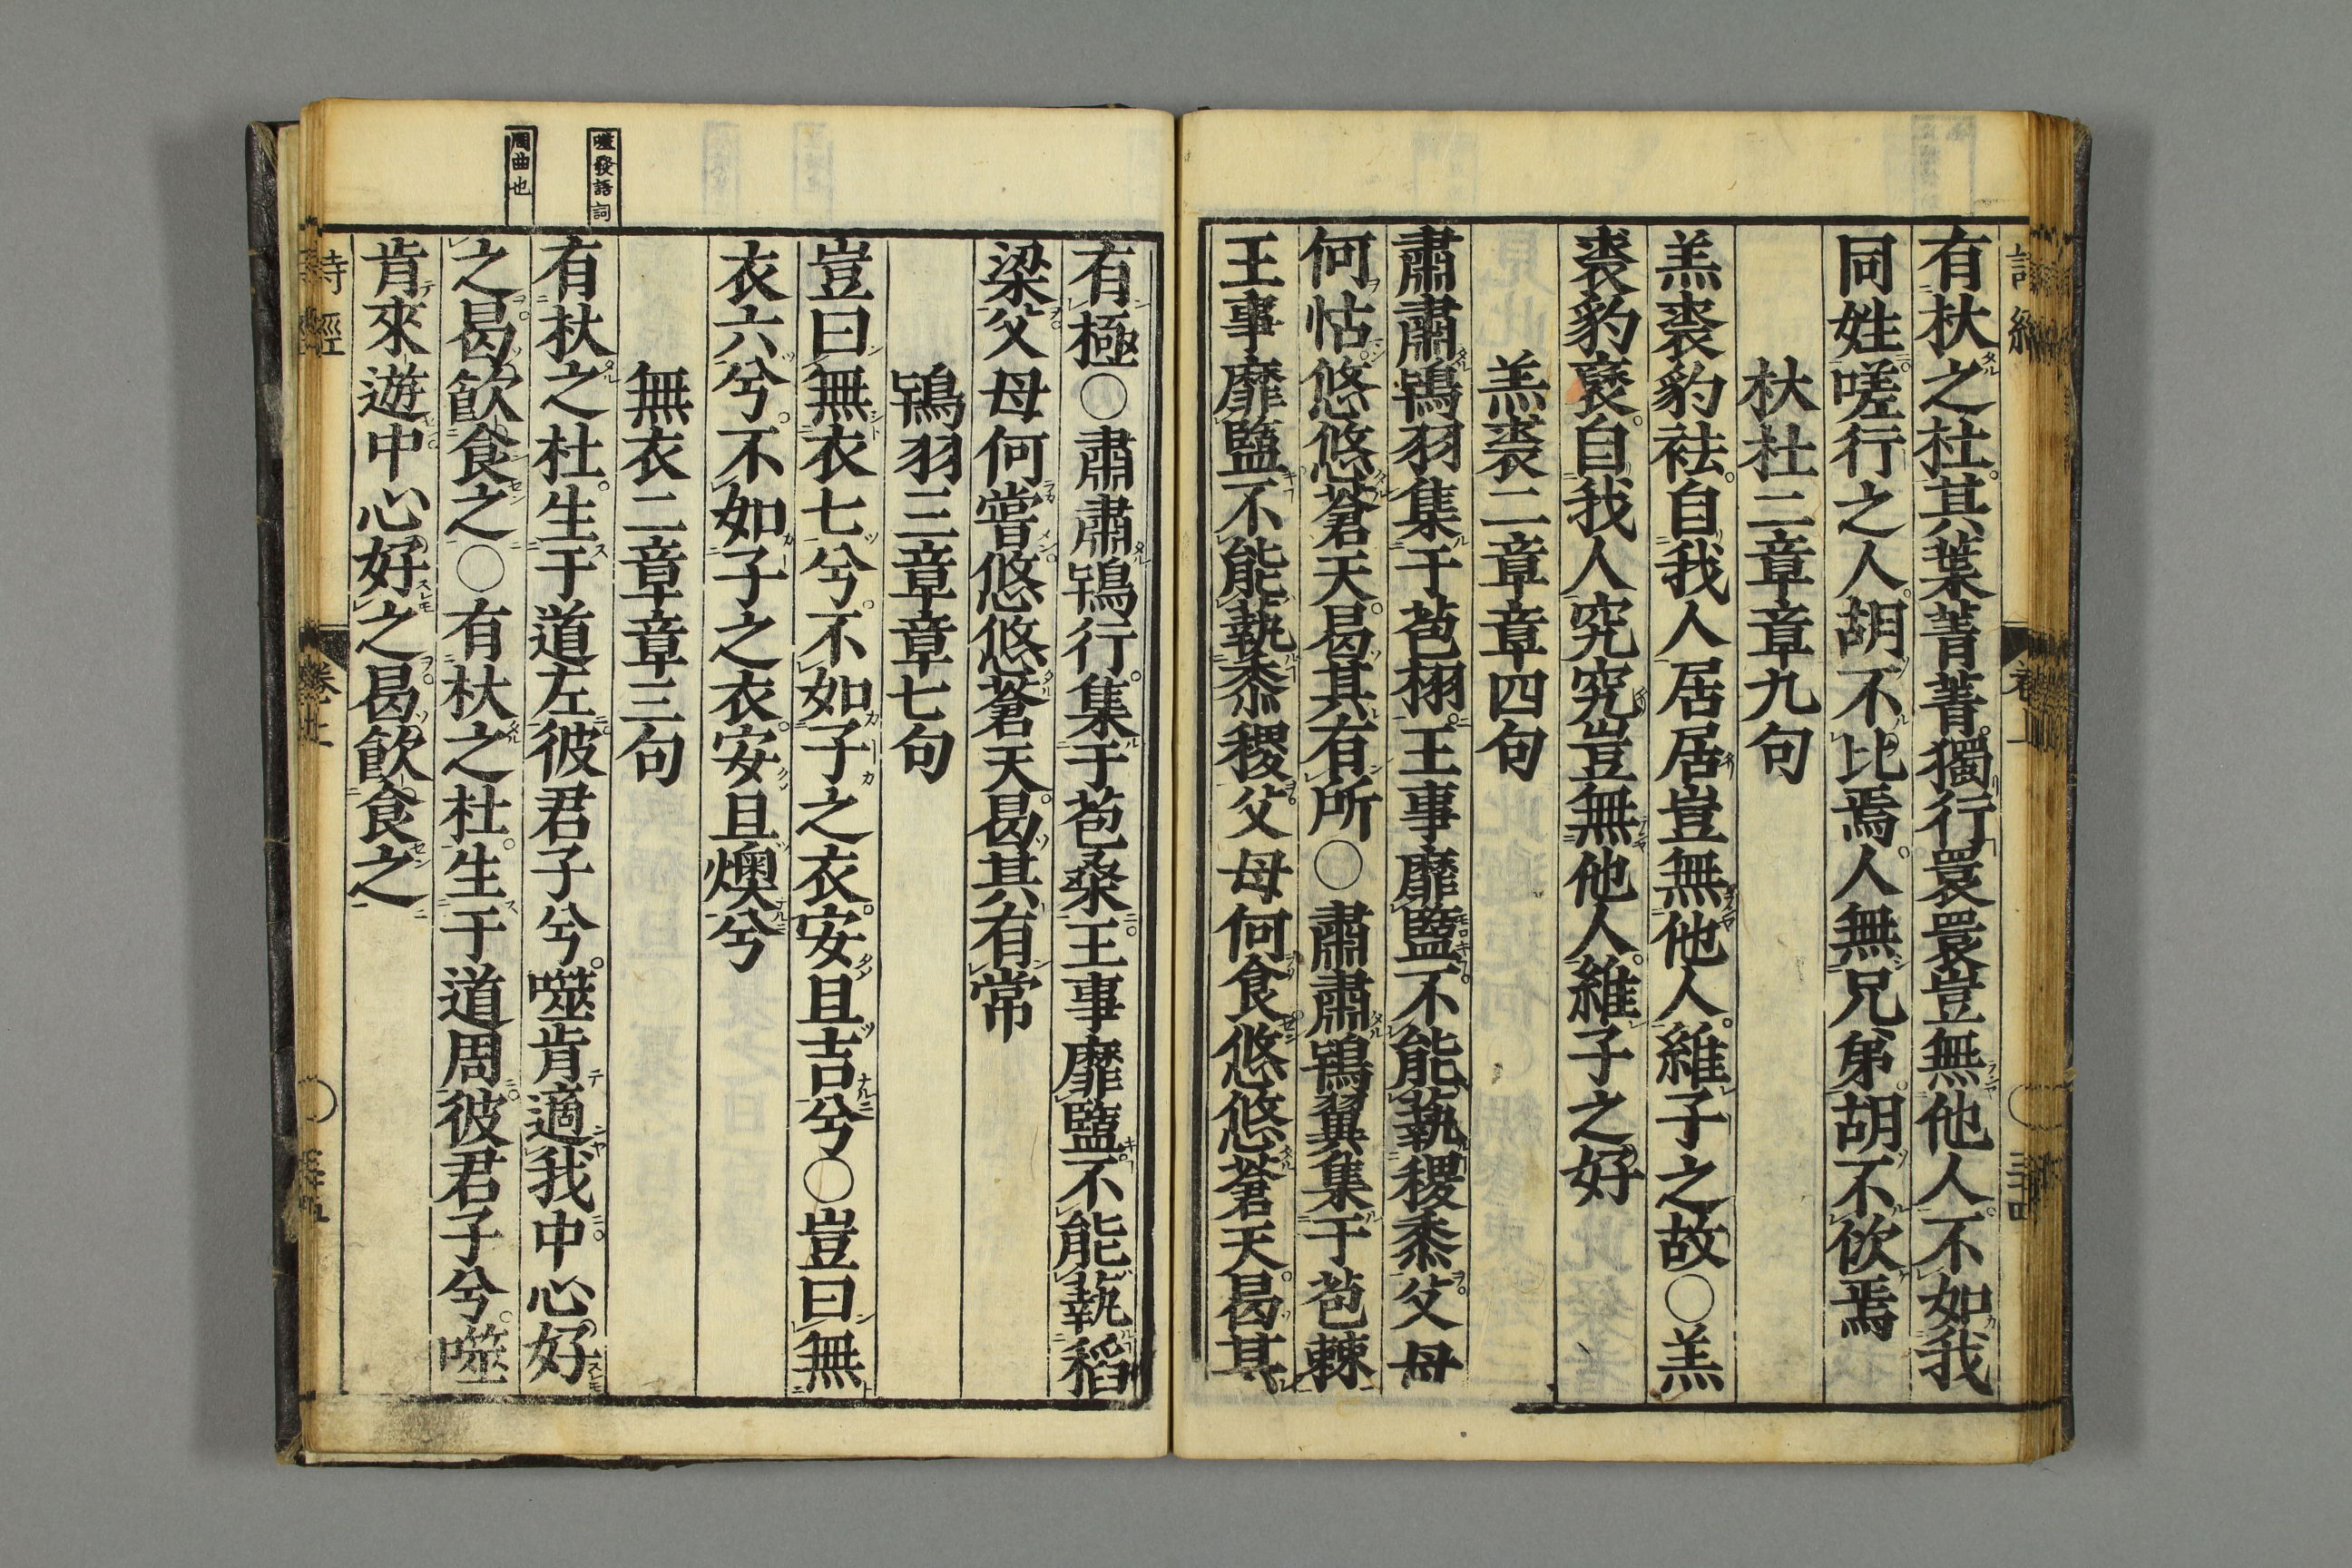 有杕之杜其葉菁菁獨行睘睘豈無他人不如我
同姓嗟行之人胡不比焉人無兄弟胡不佽焉
杕杜二章章九句
羔裘豹袪自我人居居豈無他人維子之故○羔
裘豹褎自我人究究豈無他人維子之好
羔裘二章章四句
肅肅鴇羽集于苞栩王事靡盬不能蓺稷黍父母
何怙悠悠蒼天曷其有所○肅肅鴇翼集于苞棘
王事靡盬不能蓺黍稷父母何食悠悠蒼天曷其
噬發語詞
周曲也
有極○肅肅鴇行集于苞桑王事靡盬不能蓺稻
梁父母何嘗悠悠蒼天曷其有常
鴇羽三章章七句
豈曰無衣七兮不如子之衣安且吉兮○豈曰無
衣六兮不如子之衣安且燠兮
無衣二章章三句
有杕之杜生于道左彼君子兮噬肯適我中心好
之曷飲食之○有杕之杜生于道周彼君子兮噬
肯來遊中心好之曷飲食之
詩經
卷上